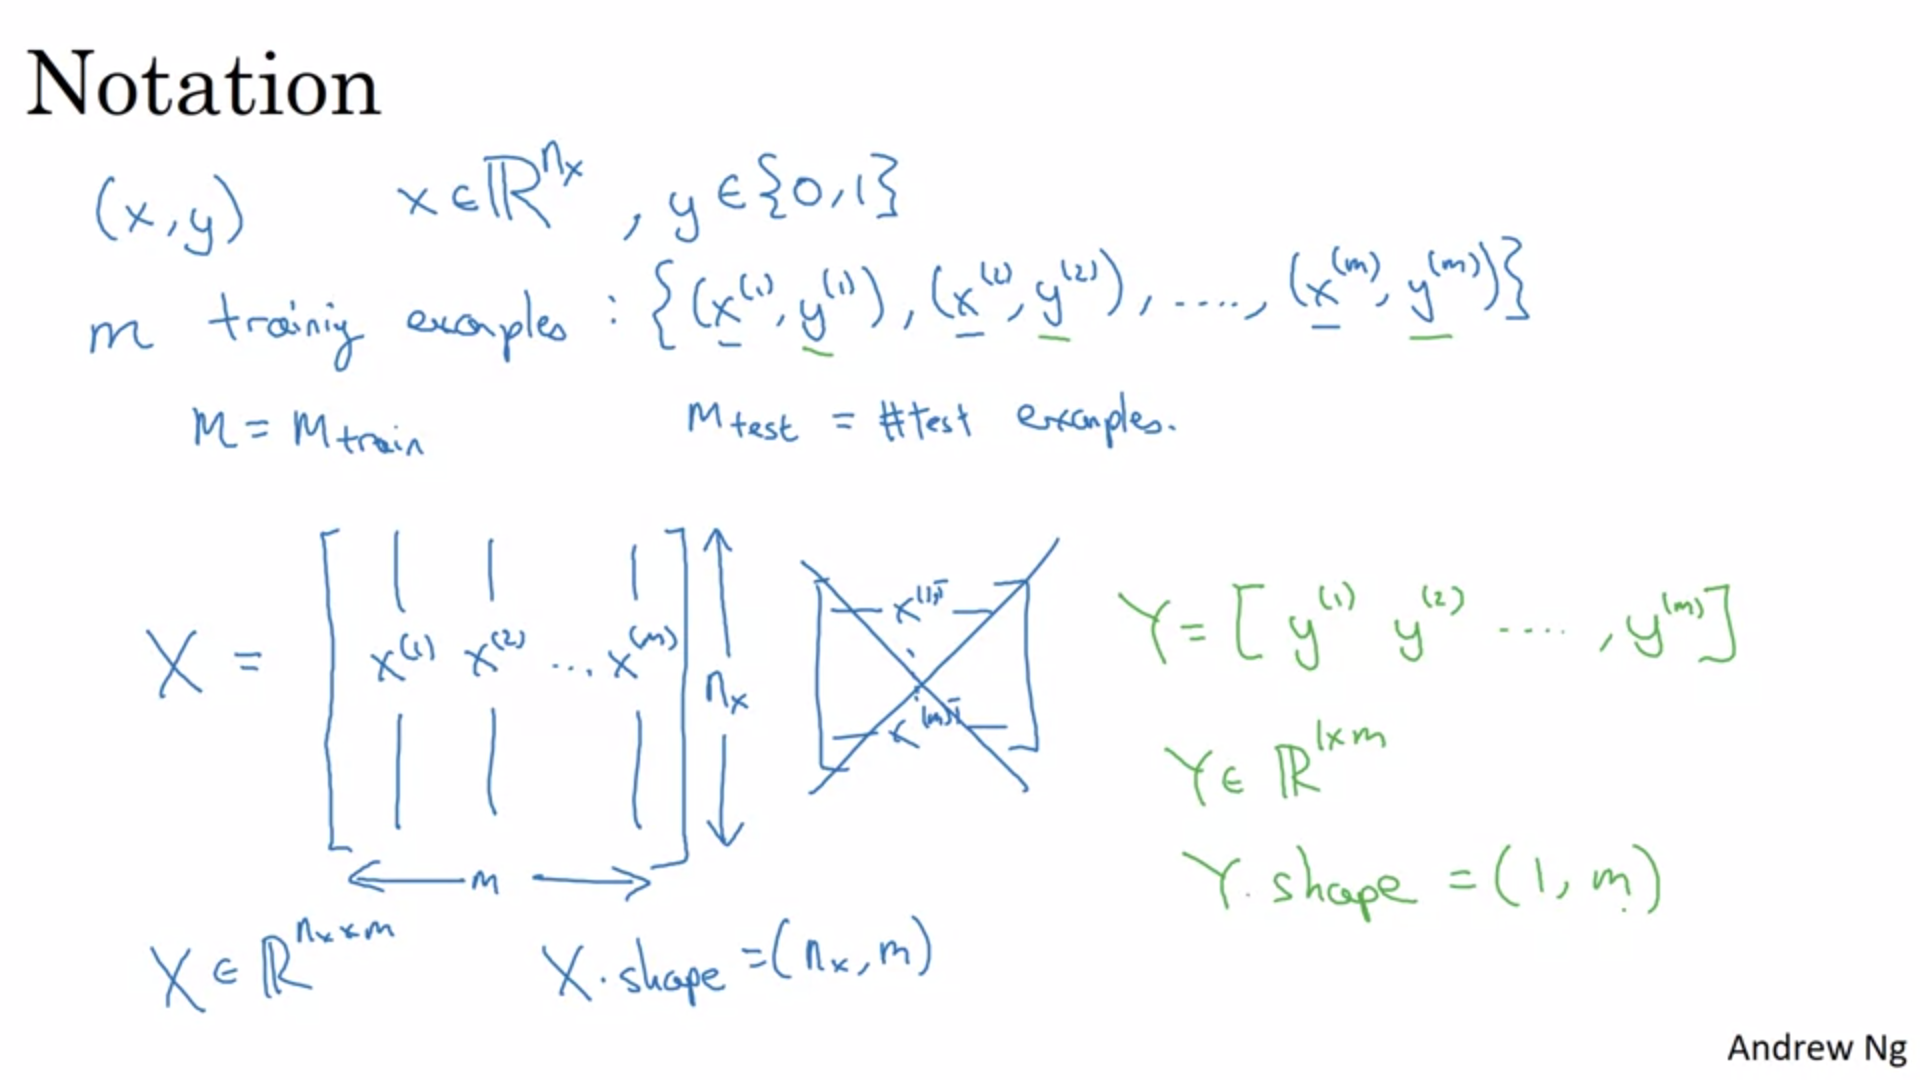 Notation
(x,y) x∈ℝ^{n_x}, y∈{0,1}
m training examples : {(x^{(1)}, y^{(1)}), (x^{(2)}, y^{(2)}), ....., (x^{(m)}, y^{(m)})}
M = M_{train} M_{test} = #test examples.
X = [x^{(1)} x^{(2)} ... x^{(m)}] n_x
m
x^{(1)T}
x^{(m)T}
Y = [y^{(1)} y^{(2)} ...., y^{(m)}]
Y∈ℝ^{1×m}
Y.shape = (1, m)
X∈ℝ^{n_x×m} X.shape = (n_x, m)
Andrew Ng